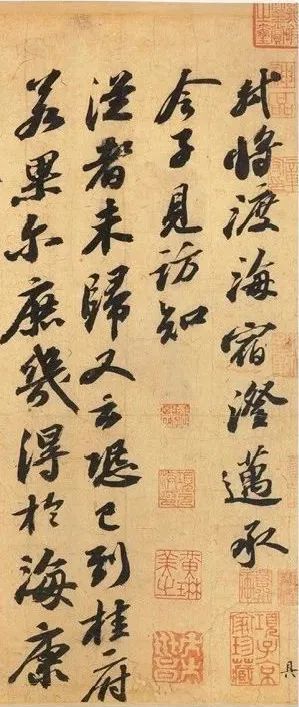 軾將渡海宿澄邁承
令子見訪知
從者未歸又云恐已到桂府
若果尔庶幾得於海康
具
項子京
家珍藏